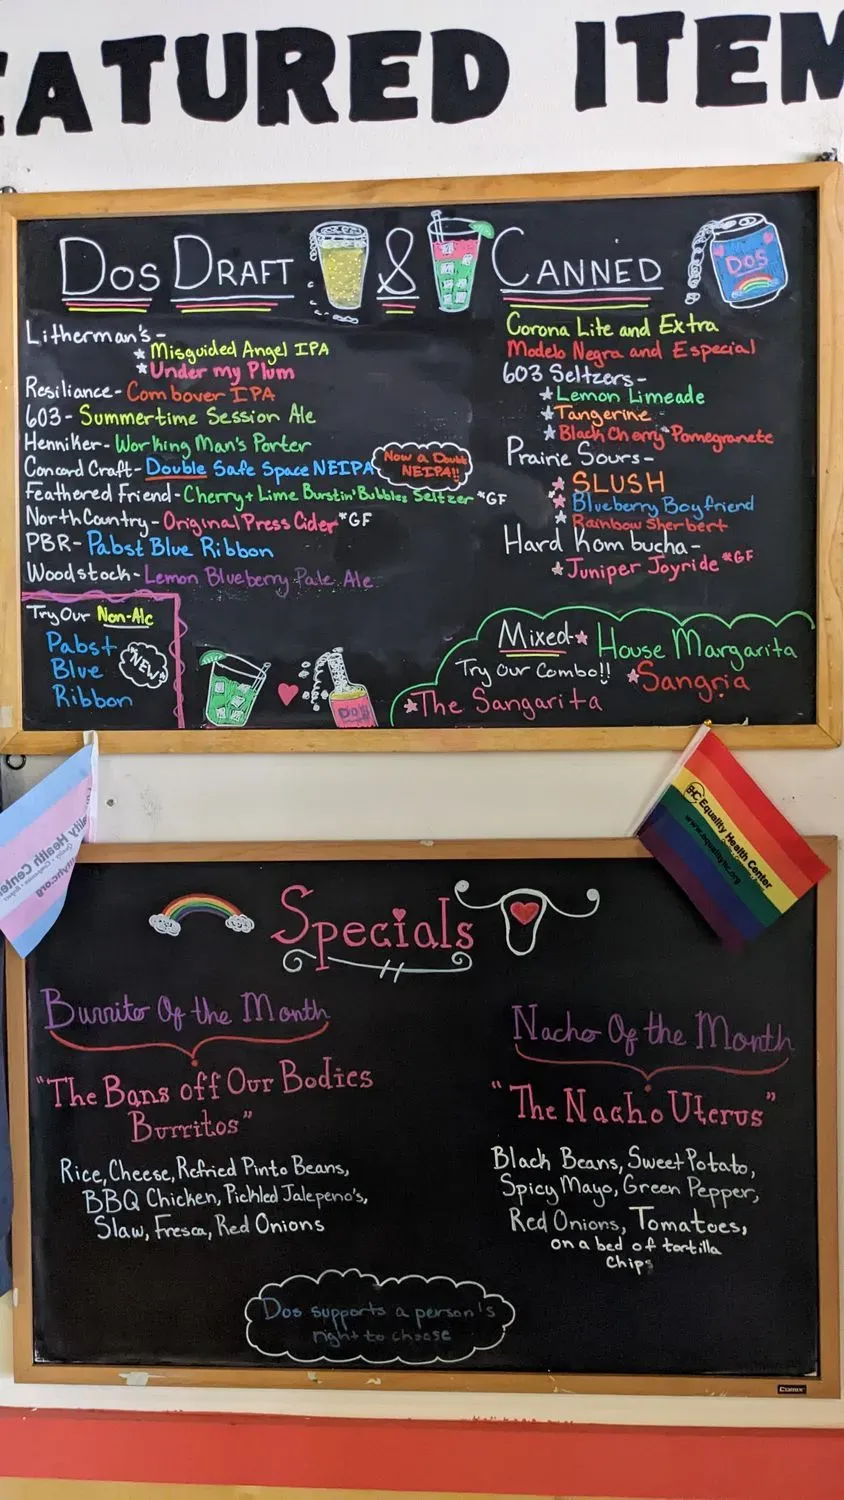 EATURED ITEM
DOS DRAFT & CANNED
DOS
Litherman's-
* Misguided Angel IPA
* Under my Plum
Resiliance- Combover IPA
603- Summertime Session Ale
Henniker- Working Man's Porter
Concord Craft- Double Safe Space NEIPA
Now a Double
NEIPA!!
Feathered Friend- Cherry + Lime Burstin' Bubbles Seltzer *GF
North Country- Original Press Cider *GF
PBR- Pabst Blue Ribbon
Woodstock- Lemon Blueberry Pale Ale
Corona Lite and Extra
Modelo Negra and Especial
603 Seltzers-
* Lemon Limeade
* Tangerine
* Black Cherry Pomegranete
Prairie Sours-
* SLUSH
* Blueberry Boyfriend
* Rainbow Sherbert
Hard Kombucha-
* Juniper Joyride *GF
Try Our Non-Alc
Pabst
Blue
Ribbon
NEW
DOS
Mixed- * House Margarita
Try Our Combo!! * Sangria
* The Sangarita
Equality Health Center
www.equalityhc.org
Specials
Burrito Of the Month
"The Bans off Our Bodies
Burritos"
Rice, Cheese, Refried Pinto Beans,
BBQ Chicken, Pickled Jalepeno's,
Slaw, Fresca, Red Onions
Nacho Of the Month
"The Nacho Uterus"
Black Beans, Sweet Potato,
Spicy Mayo, Green Pepper,
Red Onions, Tomatoes,
on a bed of tortilla
chips
Dos supports a person's
right to choose